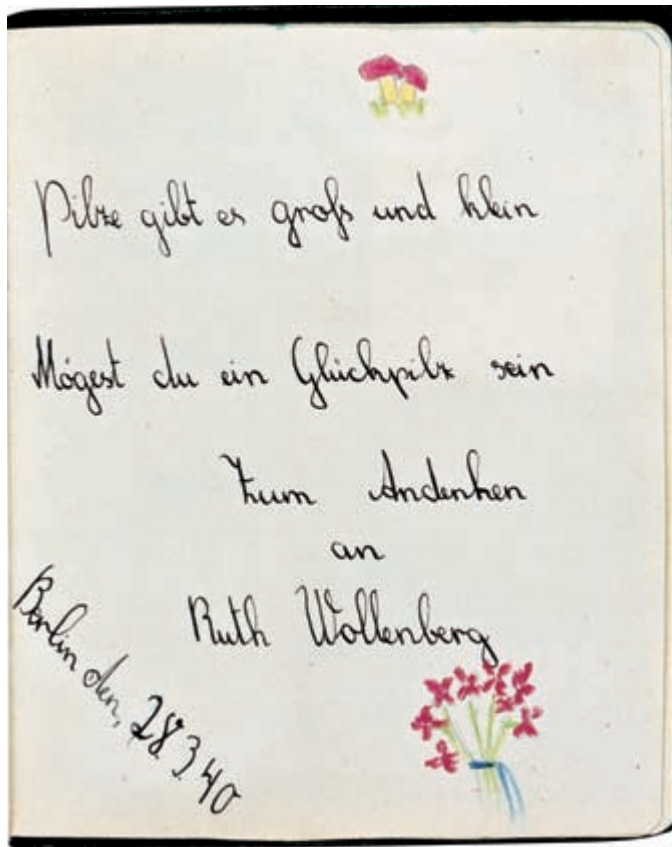 Pilze gibt es groß und klein
Mögest du ein Glückspilz sein
Zum Andenken
an
Ruth Wollenberg
Berlin den, 28.3.40